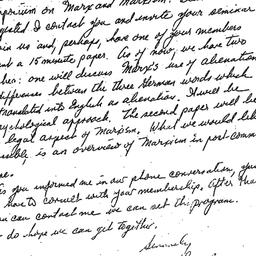 mposium on Marx and Marxism.
gested I contact you and invite your seminar
in us and, perhaps, have one of your members
nt a 15 minute paper. As of now, we have two
: one will discuss Marx's use of alienation
difference between the three German words which
translated into English as alienation. It will be
sychological approach. The second paper will be
legal aspect of Marxism. What we would like
ssible, is an overview of Marxism in post comm
e.
As you informed me in our phone conversation, you
have to consult with your membership. After that
you can contact me we can set the program.
I do hope we can get together.
Sincerely